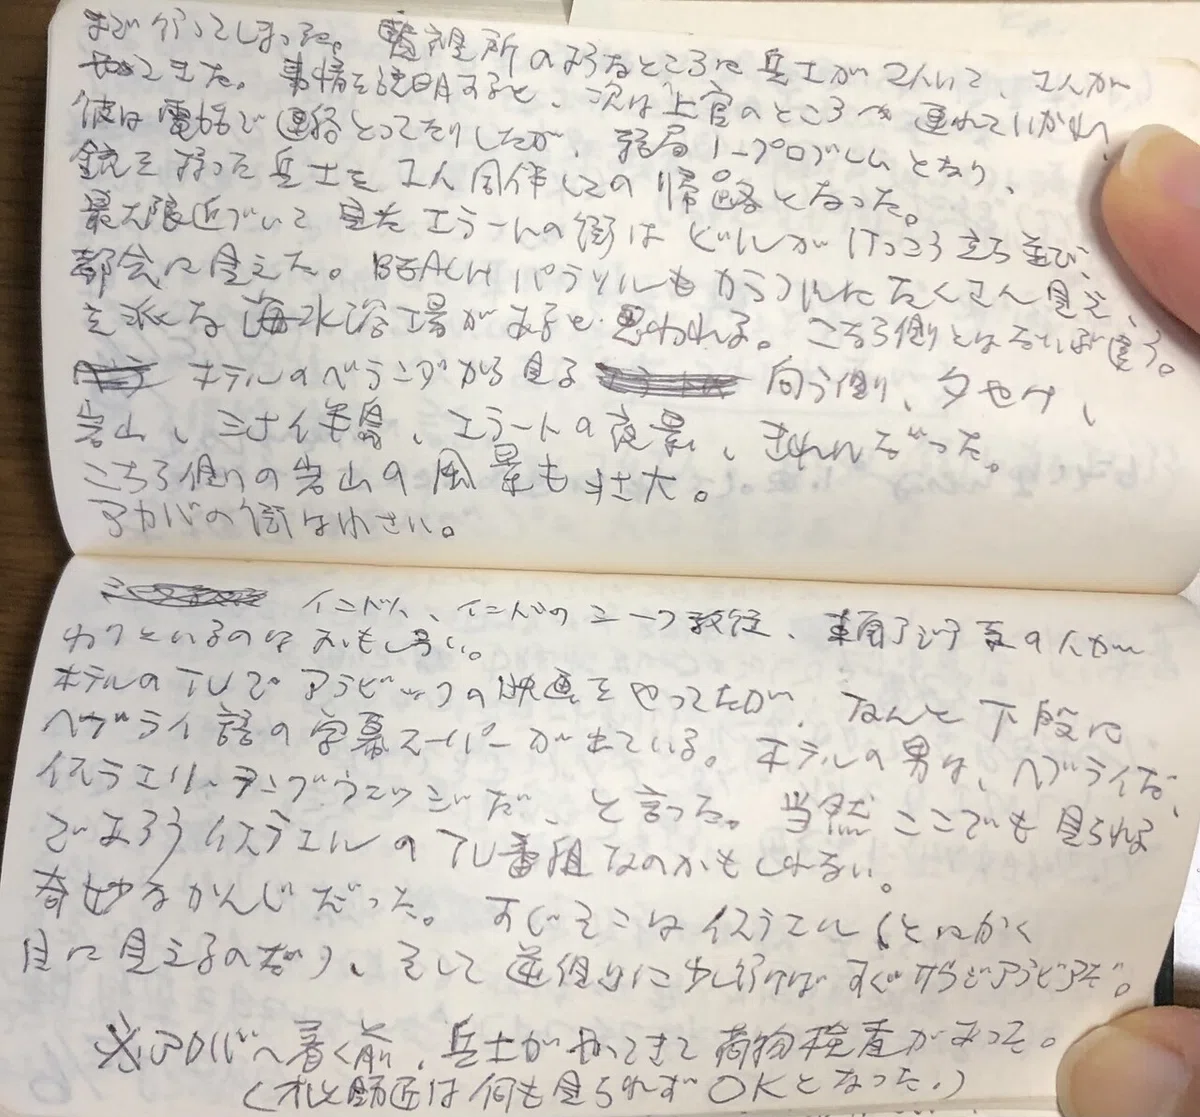 まで行ってしまった。管理所のようなところに兵士が2人いて、1人が
やってきた。事情を説明すると、次は上官のところへ連れていかれ、
彼は電話で連絡とってたりしたが、結局ノープロブレムとなり、
銃を持った兵士を2人同伴しての帰路となった。
最大限近づいて見たエラートの街はビルがけっこう立ち並び、
都会に見えた。BEACHパラソルもカラフルにたくさん見え、
立派な海水浴場があると思われる。こちら側とはえらい違う。
ホテルのベランダから見る 向う側、夕やけ、
岩山、シナイ半島、エラートの夜景、きれいだった。
こちら側の岩山の風景も壮大。
アカバの街は小さい。
インド人、インドのシーク教徒、東南アジア系の人が
けっこういるのはおもしろい。
ホテルのTVでアラビックの映画をやってたが、なんと下段に
ヘブライ語の字幕スーパーが出ている。ホテルの男は、ヘブライだ、
イスラエリーランゲウェッジだ、と言った。当然ここでも見られる
であろうイスラエルのTV番組なのかもしれない。
奇妙なかんじだった。すぐそこはイスラエル(とにかく
目に見えるのだ)、そして逆側に少し行けばすぐサウジアラビアだ。
※アカバへ着く前、兵士がやってきて荷物検査があった。
(オレと師匠は何も見られずOKとなった。)